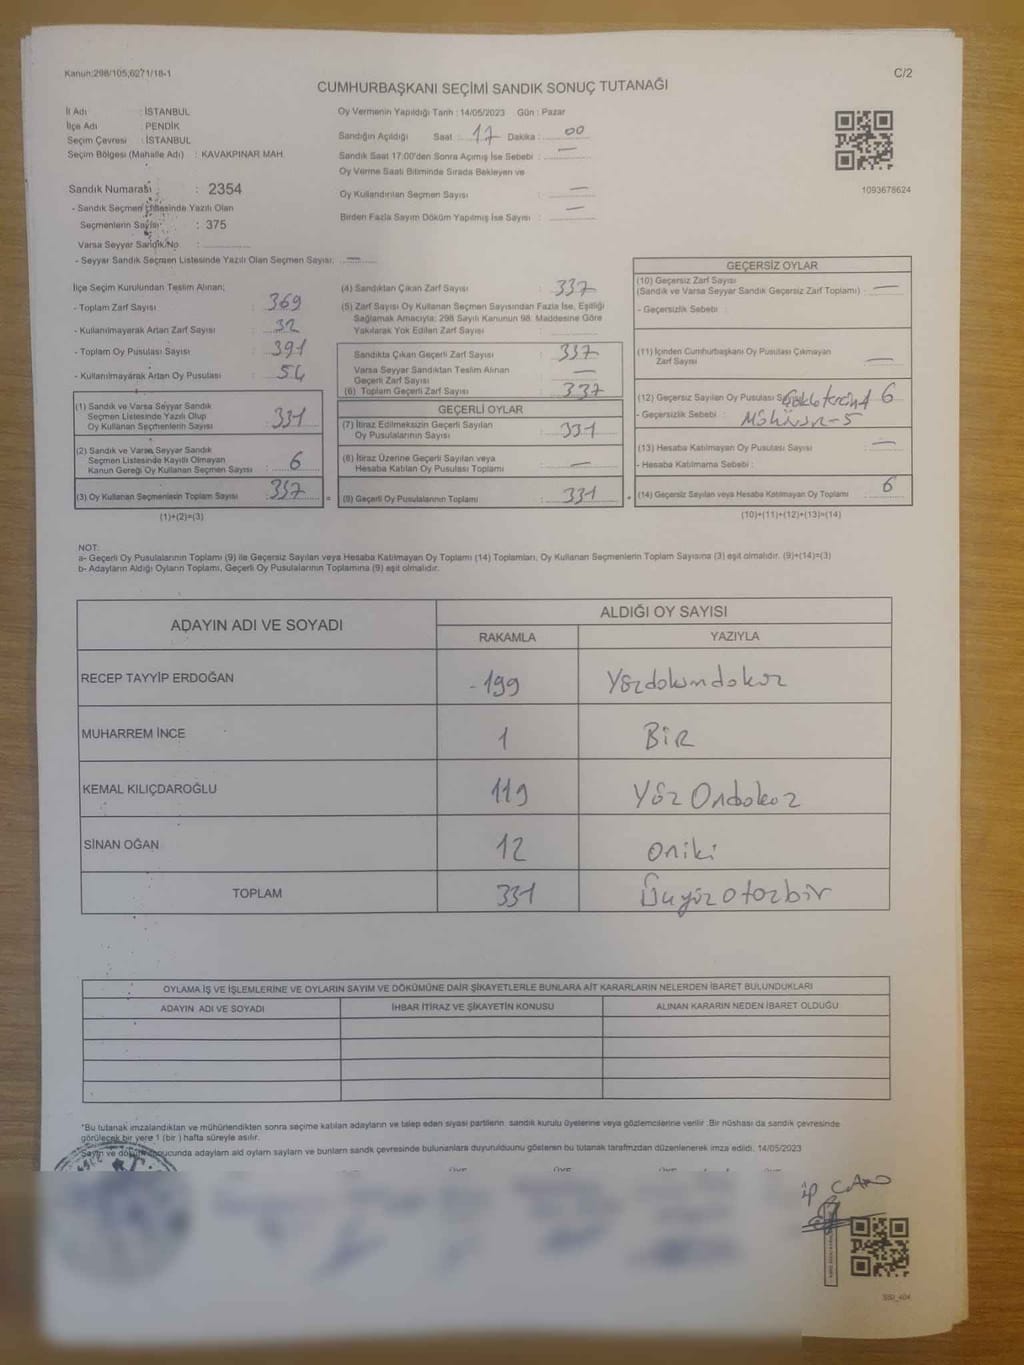 Kanun:298/105;6271/18-1
C/2
CUMHURBAŞKANI SEÇİMİ SANDIK SONUÇ TUTANAĞI
İl Adı : İSTANBUL
İlçe Adı : PENDİK
Seçim Çevresi : İSTANBUL
Seçim Bölgesi (Mahalle Adı) : KAVAKPINAR MAH.
Oy Vermenin Yapıldığı Tarih : 14/05/2023 Gün : Pazar
Sandığın Açıldığı Saat : 17 Dakika : 00
Sandık Saat 17:00'den Sonra Açılmış İse Sebebi : —
Oy Verme Saati Bitiminde Sırada Bekleyen ve
Oy Kullandırılan Seçmen Sayısı : —
Birden Fazla Sayım Döküm Yapılmış İse Sayısı : —
1093678624
Sandık Numarası : 2354
- Sandık Seçmen Listesinde Yazılı Olan
Seçmenlerin Sayısı : 375
Varsa Seyyar Sandık No :
- Seyyar Sandık Seçmen Listesinde Yazılı Olan Seçmen Sayısı: —
İlçe Seçim Kurulundan Teslim Alınan;
- Toplam Zarf Sayısı : 369
- Kullanılmayarak Artan Zarf Sayısı : 32
- Toplam Oy Pusulası Sayısı : 391
- Kullanılmayarak Artan Oy Pusulası : 54
(1) Sandık ve Varsa Seyyar Sandık
Seçmen Listesinde Yazılı Olup
Oy Kullanan Seçmenlerin Sayısı : 331
(2) Sandık ve Varsa Seyyar Sandık
Seçmen Listesinde Kayıtlı Olmayan
Kanun Gereği Oy Kullanan Seçmen Sayısı : 6
(3) Oy Kullanan Seçmenlerin Toplam Sayısı : 337 =
(1)+(2)=(3)
(4) Sandıktan Çıkan Zarf Sayısı : 337
(5) Zarf Sayısı Oy Kullanan Seçmen Sayısından Fazla İse, Eşitliği
Sağlamak Amacıyla; 298 Sayılı Kanunun 98. Maddesine Göre
Yakılarak Yok Edilen Zarf Sayısı :
Sandıkta Çıkan Geçerli Zarf Sayısı : 337
Varsa Seyyar Sandıktan Teslim Alınan
Geçerli Zarf Sayısı : —
(6) Toplam Geçerli Zarf Sayısı : 337
GEÇERLİ OYLAR
(7) İtiraz Edilmeksizin Geçerli Sayılan
Oy Pusulalarının Sayısı : 331
(8) İtiraz Üzerine Geçerli Sayılan veya
Hesaba Katılan Oy Pusulası Toplamı : —
(9) Geçerli Oy Pusulalarının Toplamı : 331 +
GEÇERSİZ OYLAR
(10) Geçersiz Zarf Sayısı
(Sandık ve Varsa Seyyar Sandık Geçersiz Zarf Toplamı) : —
- Geçersizlik Sebebi :
(11) İçinden Cumhurbaşkanı Oy Pusulası Çıkmayan
Zarf Sayısı : —
(12) Geçersiz Sayılan Oy Pusulası 6
- Geçersizlik Sebebi :
(13) Hesaba Katılmayan Oy Pusulası Sayısı : —
- Hesaba Katılmama Sebebi :
(14) Geçersiz Sayılan veya Hesaba Katılmayan Oy Toplamı : 6
(10)+(11)+(12)+(13)=(14)
NOT:
a- Geçerli Oy Pusulalarının Toplamı (9) ile Geçersiz Sayılan veya Hesaba Katılmayan Oy Toplamı (14) Toplamları, Oy Kullanan Seçmenlerin Toplam Sayısına (3) eşit olmalıdır. (9)+(14)=(3)
b- Adayların Aldığı Oyların Toplamı, Geçerli Oy Pusulalarının Toplamına (9) eşit olmalıdır.
ADAYIN ADI VE SOYADI
ALDIĞI OY SAYISI
RAKAMLA YAZIYLA
RECEP TAYYİP ERDOĞAN -199 Yüzdoksandokuz
MUHARREM İNCE 1 BİR
KEMAL KILIÇDAROĞLU 119 Yüz Ondokuz
SİNAN OĞAN 12 oniki
TOPLAM 331 Üçyüzotuzbir
OYLAMA İŞ VE İŞLEMLERİNE VE OYLARIN SAYIM VE DÖKÜMÜNE DAİR ŞİKAYETLERLE BUNLARA AİT KARARLARIN NELERDEN İBARET BULUNDUKLARI
ADAYIN ADI VE SOYADI İHBAR İTİRAZ VE ŞİKAYETİN KONUSU ALINAN KARARIN NEDEN İBARET OLDUĞU
*Bu tutanak imzalandıktan ve mühürlendikten sonra seçime katılan adayların ve talep eden siyasi partilerin, sandık kurulu üyelerine veya gözlemcilerine verilir. Bir nüshası da sandık çevresinde
görülecek bir yere 1 (bir ) hafta süreyle asılır.
Sayım ve döküm sonucunda adayların ald oyların sayıların ve bunların sandık çevresinde bulunanlara duyurulduunu gösteren bu tutanak tarafmzdan düzenlenerek imza edildi. 14/05/2023